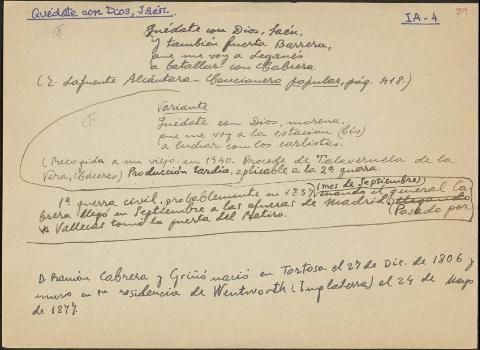 Quédate con Dios, Jaén.
IA-4
39
Quédate con Dios, Jaén,
y también puerta Barrera,
que me voy a Leganés
a batallar con Cabrera.
(E. Lafuente Alcántara - Cancionero popular, pág. 418.)
Variante
Quédate con Dios, morena,
que me voy a la estación (bis)
a luchar con los carlistas.
(Recogida a un viejo, en 1940. Procede de Talaveruela de la
Vera, Cáceres) Producción tardía, aplicable a la 2ª guerra.
1ª guerra civil, probablemente en 1837 (mes de Septiembre) cuando el general Ca
brera llegó en Septiembre a las afueras de Madrid, llegando
(Pasado por
Vallecas tomó la puerta del Retiro.
D. Ramón Cabrera y Griñó nació en Tortosa el 27 de Dic. de 1806 y
murió en su residencia de Wentworth (Inglaterra) el 24 de Mayo
de 1877.